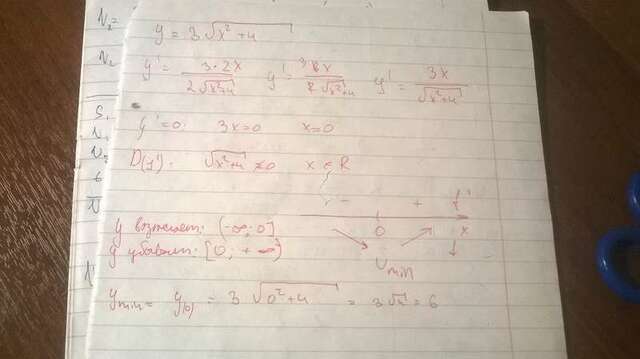 y = 3√(x²+4)
y' = 3·2x / 2√(x²+4) y' = 3x / √(x²+4) y' = 3x / √(x²+4)
y'=0: 3x=0 x=0
D(y'): √(x²+4) ≠0 x ∈ R
- + f'
y возрастает: (-∞; 0] 0 x
y убывает: [0; +∞) min
y min = y(0) = 3√(0²+4) = 3√4 = 6